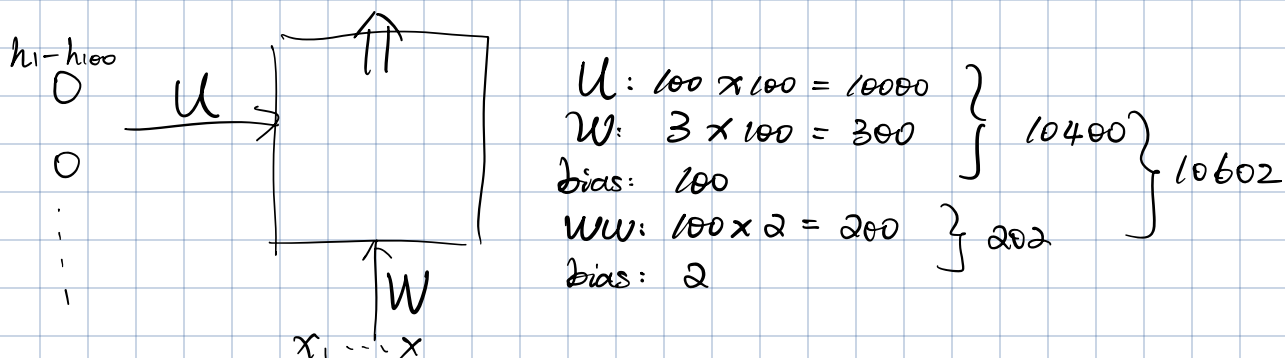 h1-h100
U
W
x1 ... x
U: 100 × 100 = 10000
W: 3 × 100 = 300
bias: 100
10400
WW: 100 × 2 = 200
bias: 2
202
10602